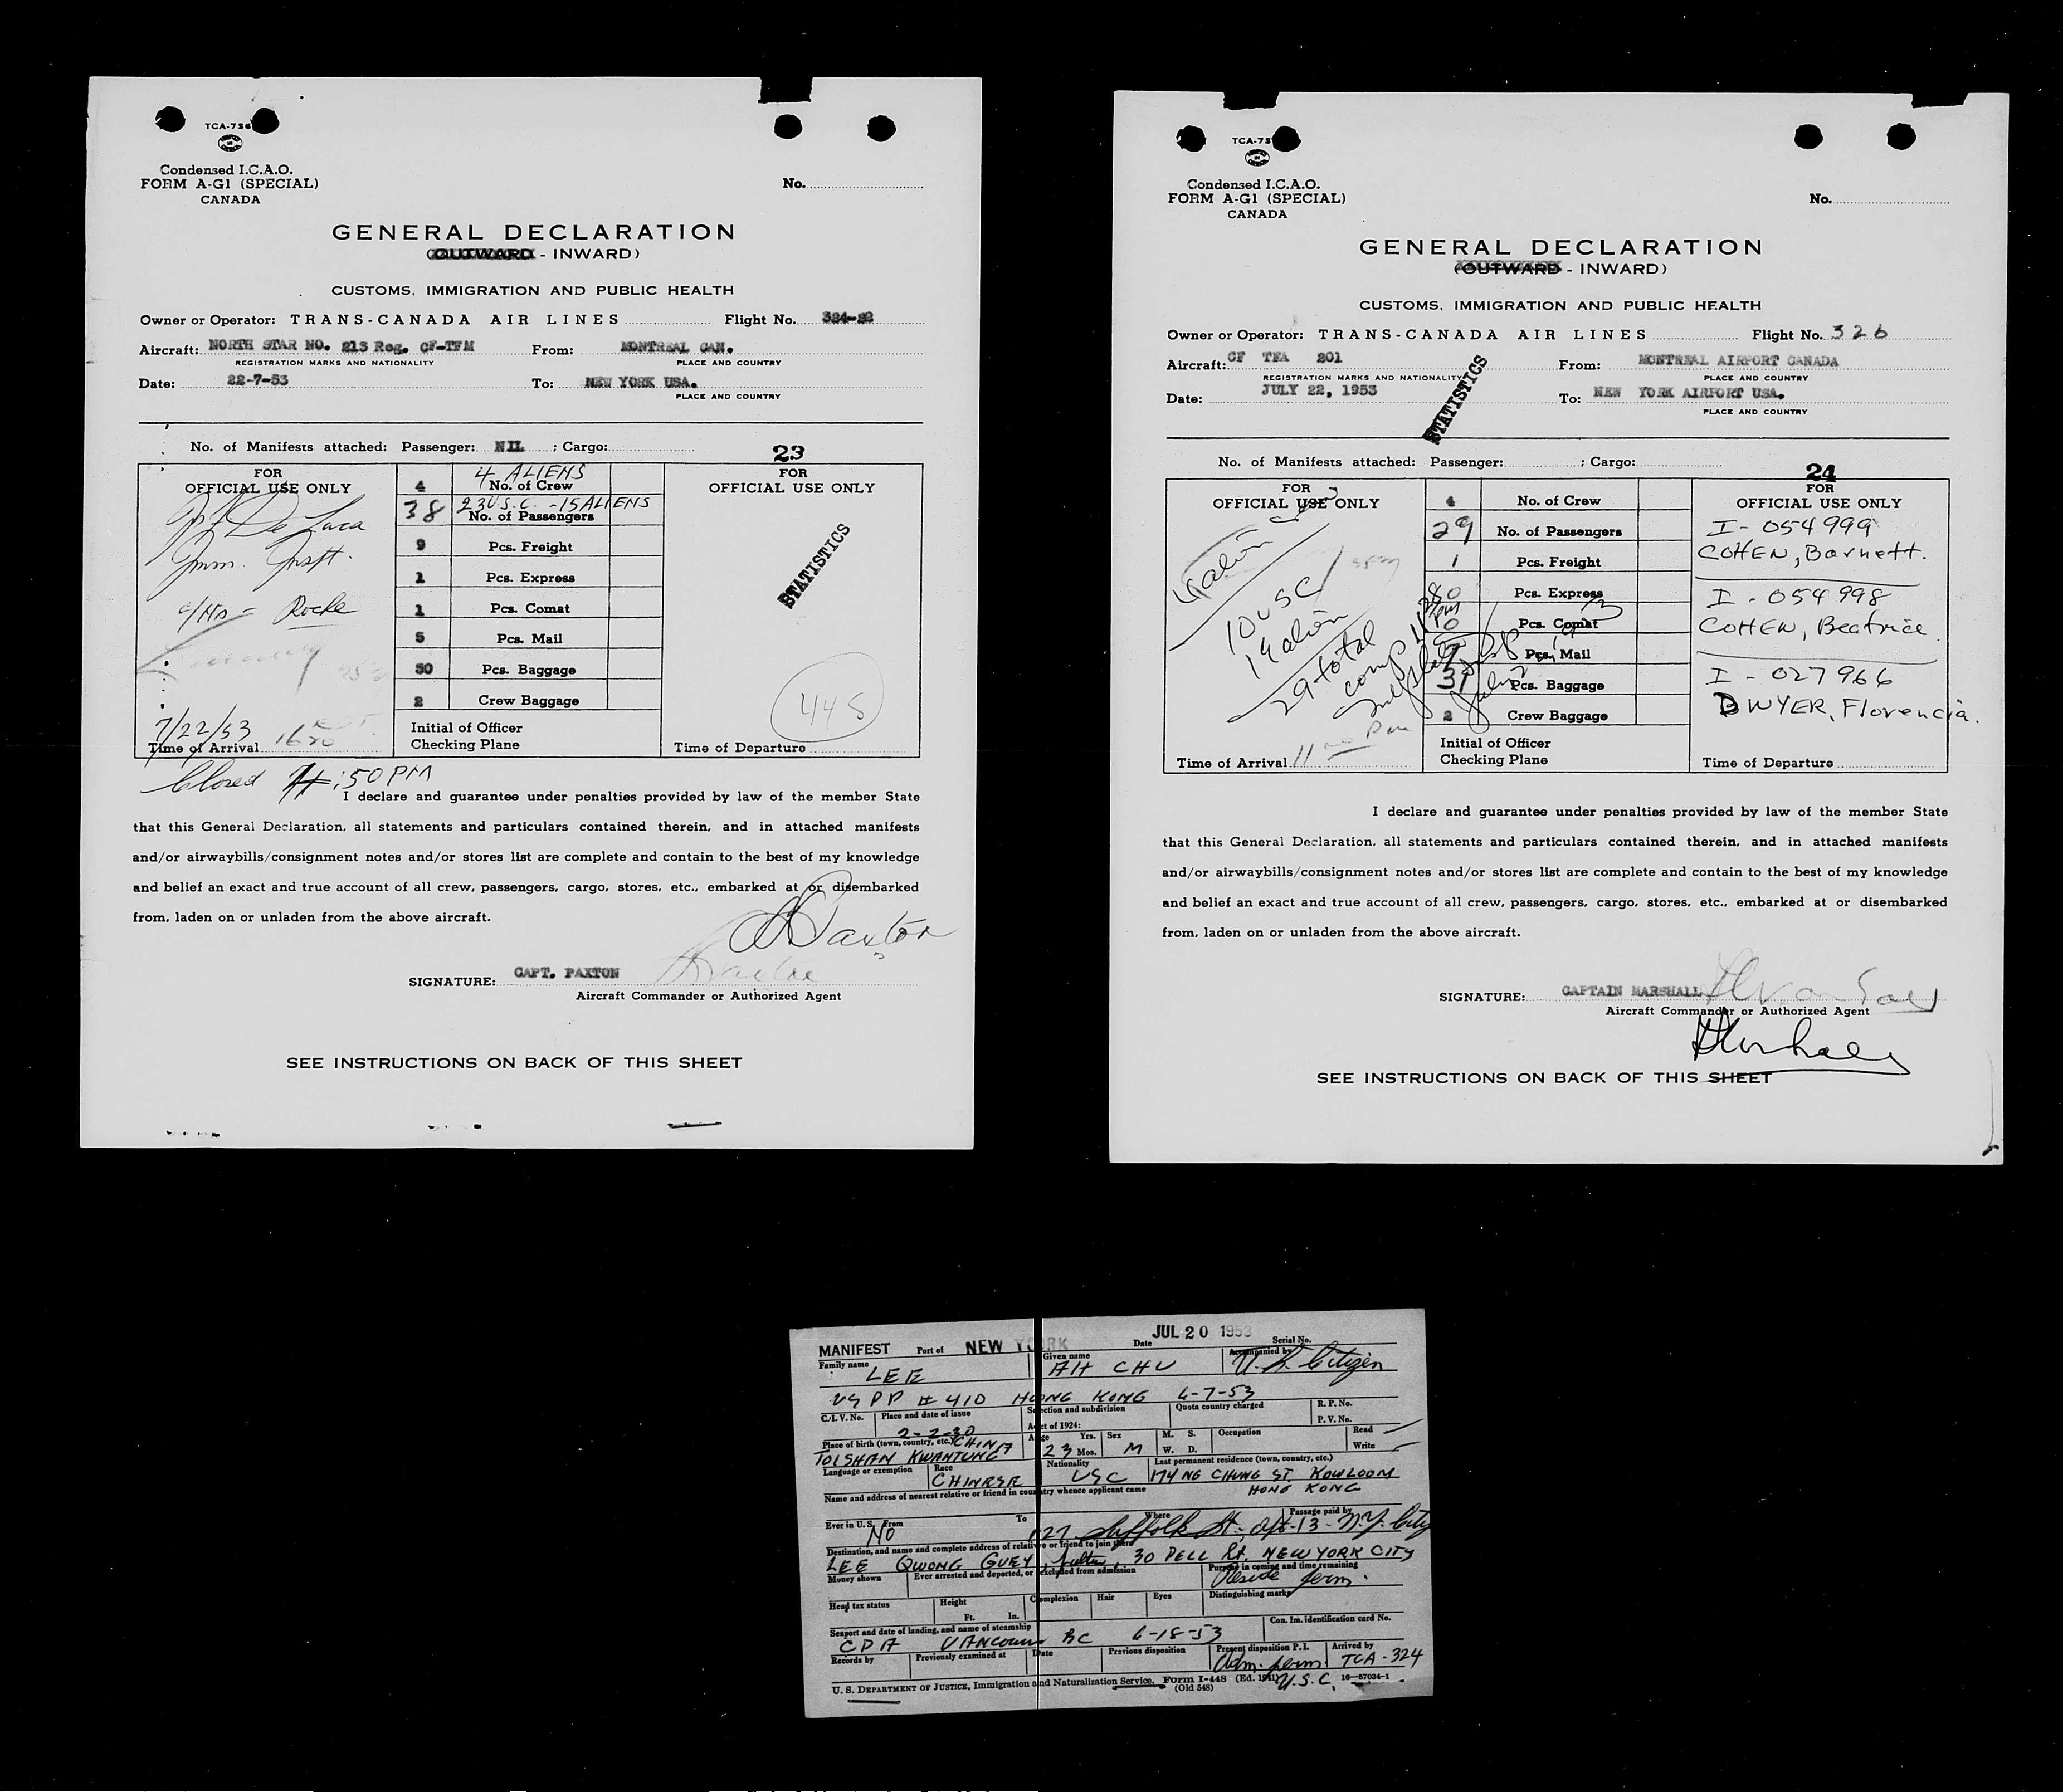 TCA-736
Condensed I.C.A.O.
FORM A-G1 (SPECIAL)
CANADA
No.
GENERAL DECLARATION
(OUTWARD - INWARD)
CUSTOMS, IMMIGRATION AND PUBLIC HEALTH
Owner or Operator: TRANS-CANADA AIR LINES Flight No. 324-22
Aircraft: NORTH STAR NO. 213 Reg. CF-TFM From: MONTREAL CAN.
REGISTRATION MARKS AND NATIONALITY PLACE AND COUNTRY
Date: 22-7-53 To: NEW YORK USA.
PLACE AND COUNTRY
No. of Manifests attached: Passenger: NIL ; Cargo:
23
FOR
OFFICIAL USE ONLY
De Luca
Imm. Inspt.
Rocke
7/22/53
Time of Arrival 1620
4 ALIENS
4 No. of Crew
23 U.S.C. - 15 ALIENS
38 No. of Passengers
9 Pcs. Freight
1 Pcs. Express
1 Pcs. Comat
5 Pcs. Mail
50 Pcs. Baggage
2 Crew Baggage
Initial of Officer
Checking Plane
FOR
OFFICIAL USE ONLY
STATISTICS
448
Time of Departure
Closed :50 PM
I declare and guarantee under penalties provided by law of the member State
that this General Declaration, all statements and particulars contained therein, and in attached manifests
and/or airwaybills/consignment notes and/or stores list are complete and contain to the best of my knowledge
and belief an exact and true account of all crew, passengers, cargo, stores, etc., embarked at or disembarked
from, laden on or unladen from the above aircraft.
Paxton
SIGNATURE: CAPT. PAXTON
Aircraft Commander or Authorized Agent
SEE INSTRUCTIONS ON BACK OF THIS SHEET
TCA-73
Condensed I.C.A.O.
FORM A-G1 (SPECIAL)
CANADA
No.
GENERAL DECLARATION
(OUTWARD - INWARD)
CUSTOMS, IMMIGRATION AND PUBLIC HEALTH
Owner or Operator: TRANS-CANADA AIR LINES Flight No. 326
Aircraft: CF TFA 201 From: MONTREAL AIRPORT CANADA
REGISTRATION MARKS AND NATIONALITY PLACE AND COUNTRY
Date: JULY 22, 1953 To: NEW YORK AIRPORT USA.
PLACE AND COUNTRY
STATISTICS
No. of Manifests attached: Passenger: ; Cargo:
24
FOR
OFFICIAL USE ONLY
4 alien
10 USC
19 alien
29 total
Time of Arrival 11 Pm
4 No. of Crew
29 No. of Passengers
1 Pcs. Freight
Pcs. Express
Pcs. Comat
Pcs. Mail
31 Pcs. Baggage
2 Crew Baggage
Initial of Officer
Checking Plane
FOR
OFFICIAL USE ONLY
I-054999
COHEN, Barnett.
I-054998
COHEN, Beatrice.
I-027966
DWYER, Florencia.
Time of Departure
I declare and guarantee under penalties provided by law of the member State
that this General Declaration, all statements and particulars contained therein, and in attached manifests
and/or airwaybills/consignment notes and/or stores list are complete and contain to the best of my knowledge
and belief an exact and true account of all crew, passengers, cargo, stores, etc., embarked at or disembarked
from, laden on or unladen from the above aircraft.
SIGNATURE: CAPTAIN MARSHALL
Aircraft Commander or Authorized Agent
SEE INSTRUCTIONS ON BACK OF THIS SHEET
MANIFEST Port of NEW YORK Date JUL 20 1953 Serial No.
Family name LEE Given name AH CHU Accompanied by U.S. Citizen
US PP # 410 HONG KONG 4-7-53
C.I.V. No. Place and date of issue Section and subdivision Act of 1924: Quota country charged R.P. No. P.V. No.
2-2-30
Place of birth (town, country, etc.) CHINA Age Yrs. Sex M. S. Occupation Read
TOISHAN KWANTUNG 23 Mos. M W. D. Write
Language or exemption Race CHINESE Nationality USC Last permanent residence (town, country, etc.) 174 NG CHUNG ST. KOWLOON
HONG KONG
Name and address of nearest relative or friend in country whence applicant came
Ever in U.S. From To Where Passage paid by
NO 127 Suffolk St. Apt-13 - N.Y. City
Destination, and name and complete address of relative or friend to join there
LEE QWONG GUEY, 30 PELL St. NEW YORK CITY
Money shown Ever arrested and deported, or excluded from admission Purpose in coming and time remaining
Reside perm.
Head tax status Height Ft. In. Complexion Hair Eyes Distinguishing marks
Seaport and date of landing, and name of steamship Con. Im. identification card No.
CPA VANCOUVER BC 4-18-53
Records by Previously examined at Date Previous disposition Present disposition P.I. Arrived by
Adm. perm. TCA-324
U.S.C.
U. S. DEPARTMENT OF JUSTICE, Immigration and Naturalization Service. Form I-448 (Ed. 1941) 16-57034-1
(Old 548)